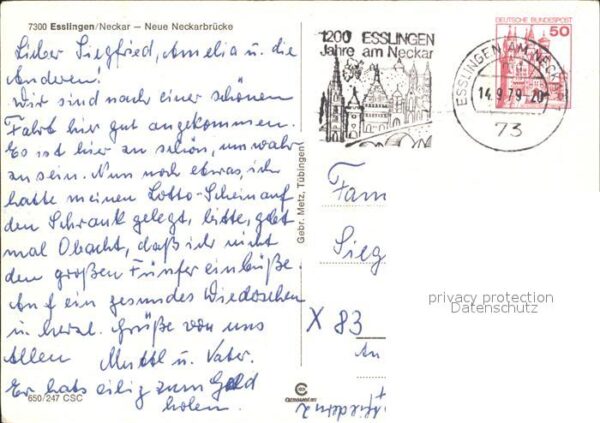 7300 Esslingen/Neckar – Neue Neckarbrücke
Lieber Siegfried, Amelia u. die
Anderen!
Wir sind nach einer schönen
Fahrt hier gut angekommen.
Es ist hier zu schön, um wahr
zu sein. Nun noch etwas, ich
hatte meinen Lotto-Schein auf
den Schrank gelegt, bitte, gebt
mal Obacht, daß ich nicht
den großen Fünfer einbüße.
Auf ein gesundes Wiedersehen
u. herzl. Grüße von uns
Allen Muttl u. Vater.
Er hats eilig zum Geld
holen.
650/247 CSC
Gebr. Metz, Tübingen
1200 ESSLINGEN
Jahre am Neckar
ESSLINGEN AM NECK
14.9.79-20
73
DEUTSCHE BUNDESPOST
50
Fam
Sieg
privacy protection
Datenschutz
X 83
An